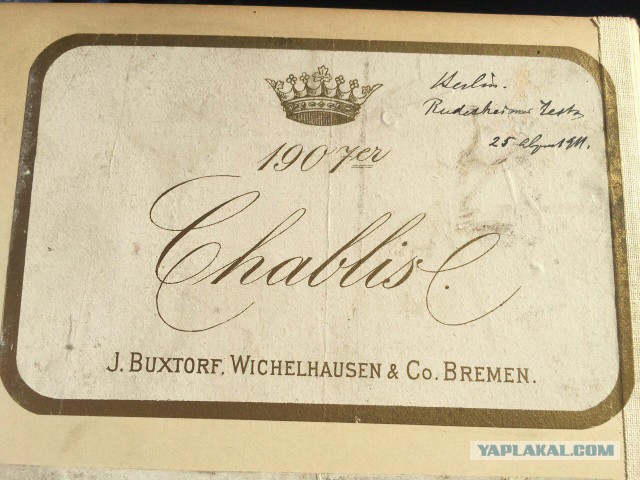 Berlin.
Rudesheimer
25 August 1911.
1907er
Chablis.
J. BUXTORF, WICHELHAUSEN & CO. BREMEN.
YAPLAKAL.COM